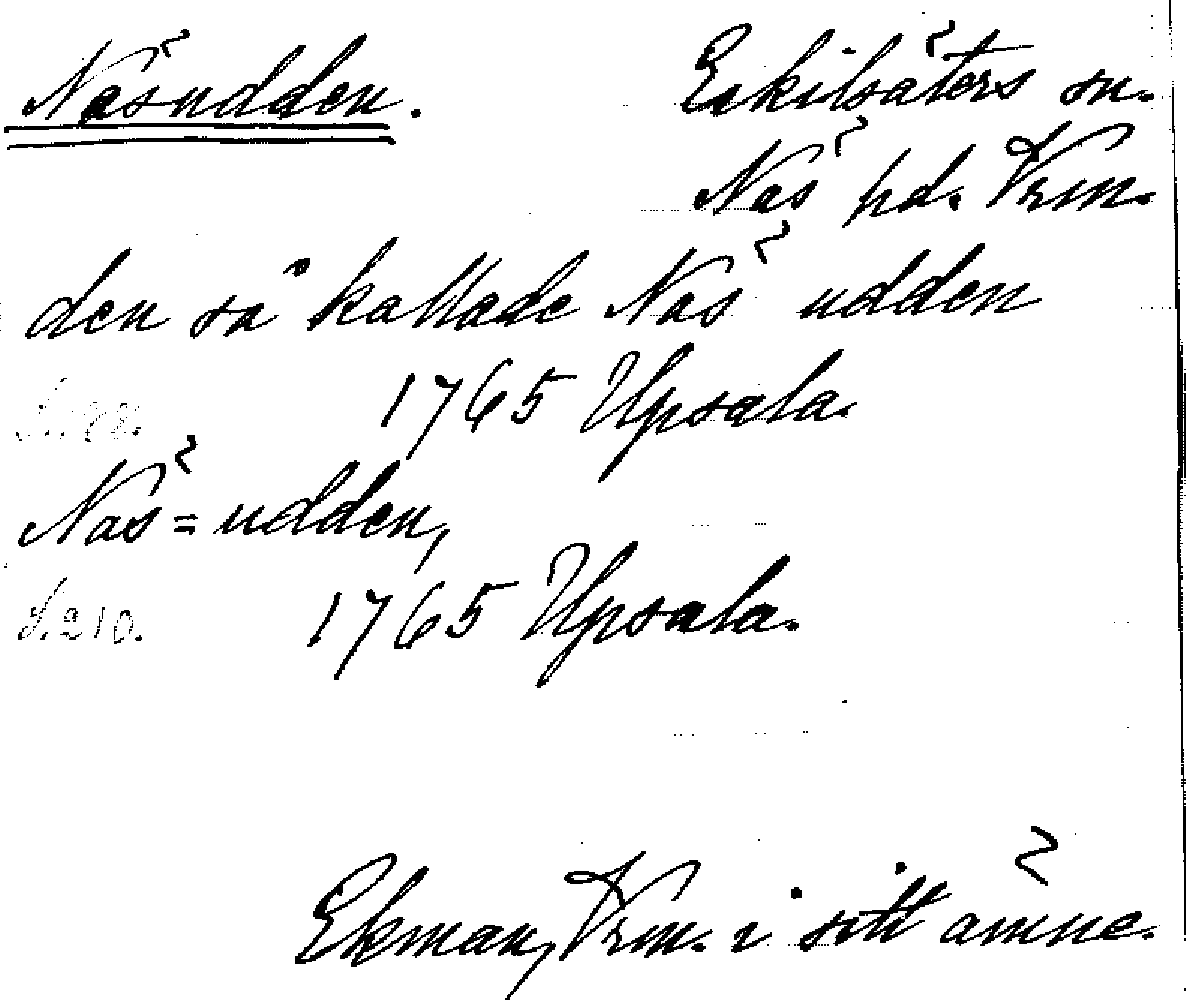 Näsudden.
Eskilsäters sn.
Näs hd. Vrm.
den så kallade Näs udden
1765 Upsala.
Näs=udden,
S.210.
1765 Upsala.
Ekman, Vrm. i sitt ämne.